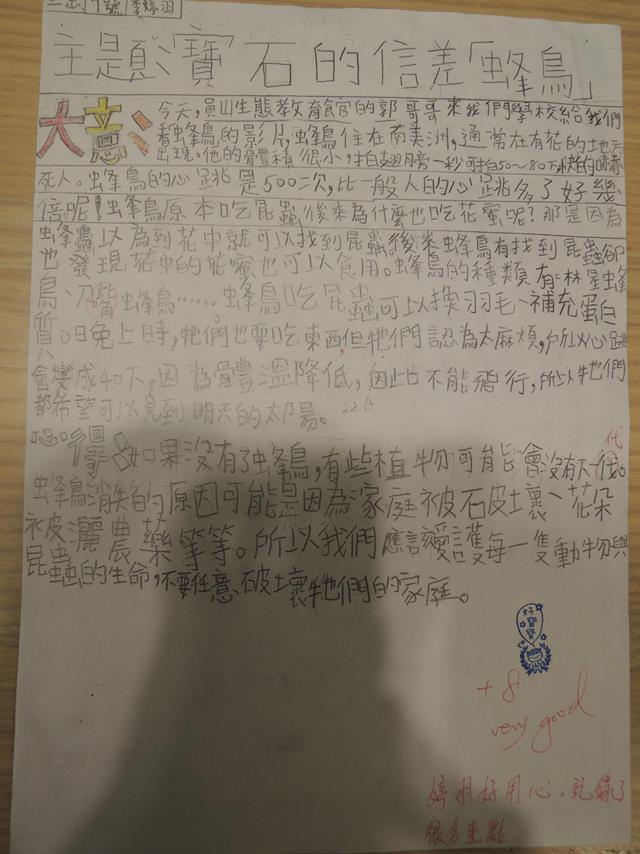 主題:寶石的信差「蜂鳥」
大意:今天,員山生態教育館的郭哥哥來我們學校給我們
看蜂鳥的影片,蜂鳥住在南美洲,通常在有花的地方
出現。他的骨體積很小,拍翅膀一秒可拍50~80下
死人。蜂鳥的心跳是500二次,比一般人的心跳多了好幾
倍呢!蜂鳥原本吃昆蟲後來為什麼也吃花蜜呢?那是因為
蜂鳥以為到花中就可以找到昆蟲後來蜂鳥有找到昆蟲卻
也發現花中的花蜜也可以食用。蜂鳥的種類有:林星蜂
鳥、刀嘴蜂鳥……。蜂鳥吃昆蟲可以換羽毛、補充蛋白
質。晚上時,牠們也要吃東西但牠們認為太麻煩,所以心跳
會變成40下,因為體溫降低,因此不能飛行,所以牠們
都希望可以見到明天的太陽。226
心得:如果沒有了蜂鳥,有些植物可能會沒有下一代。
蜂鳥消失的原因可能是因為家庭被破壞、花朵
被灑農藥等等。所以我們應該愛護每一隻動物與
昆蟲的生命,不要任意破壞牠們的家庭。
好寶寶
+8
very good
婷羽好用心,記錄了
很多重點.